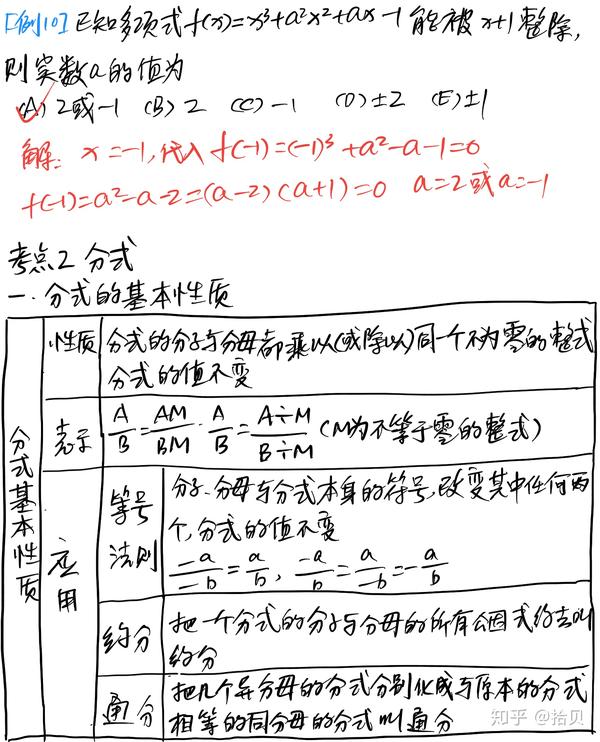 [例10] 已知多项式 f(x)=x³+a²x²+ax-1 能被 x+1 整除,
则实数a的值为
(A) 2或-1 (B) 2 (C) -1 (D) ±2 (E) ±1
解: x=-1, 代入 f(-1)=(-1)³+a²-a-1=0
f(-1)=a²-a-2=(a-2)(a+1)=0 a=2或a=-1
考点2 分式
一. 分式的基本性质
分式基本性质
性质
分式的分子与分母都乘以(或除以)同一个不为零的整式
分式的值不变
表示
A/B=AM/BM · A/B=A÷M/B÷M (M为不等于零的整式)
应用
等号
法则
分子.分母与分式本身的符号,改变其中任何两
个,分式的值不变
-a/-b=a/b, -a/b=a/-b=-a/b
约分
把一个分式的分子与分母的所有公因式约去叫
约分
通分
把几个异分母的分式分别化成与原本的分式
相等的同分母的分式叫通分
知乎 @拾贝